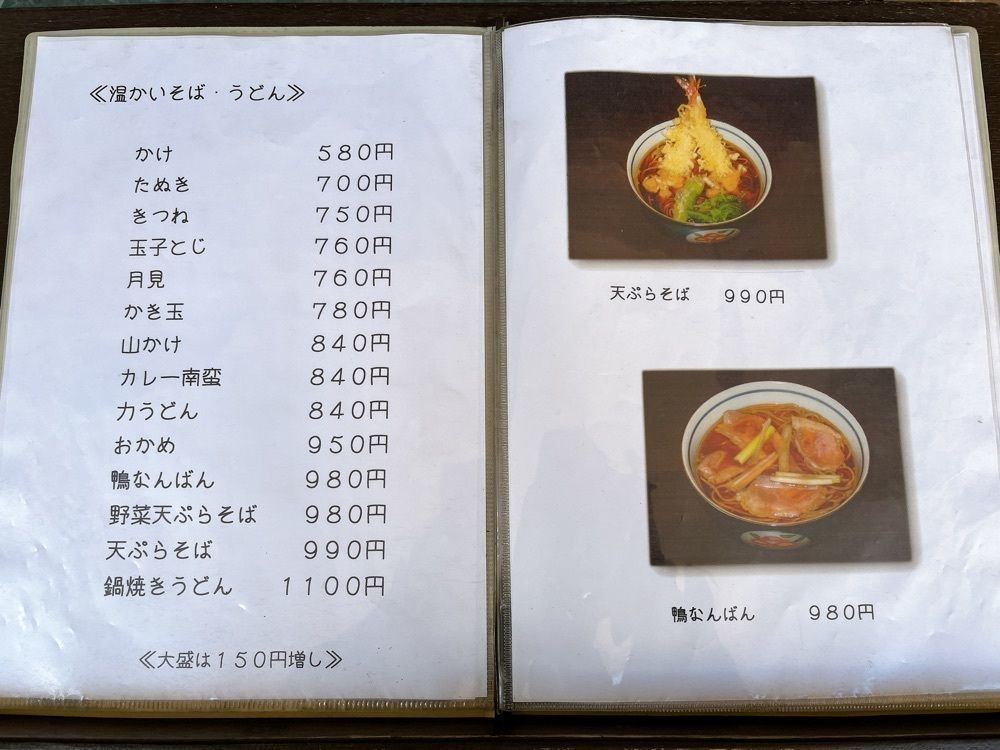 ≪温かいそば・うどん≫
かけ 580円
たぬき 700円
きつね 750円
玉子とじ 760円
月見 760円
かき玉 780円
山かけ 840円
カレー南蛮 840円
力うどん 840円
おかめ 950円
鴨なんばん 980円
野菜天ぷらそば 980円
天ぷらそば 990円
鍋焼きうどん 1100円
≪大盛は150円増し≫
天ぷらそば 990円
鴨なんばん 980円